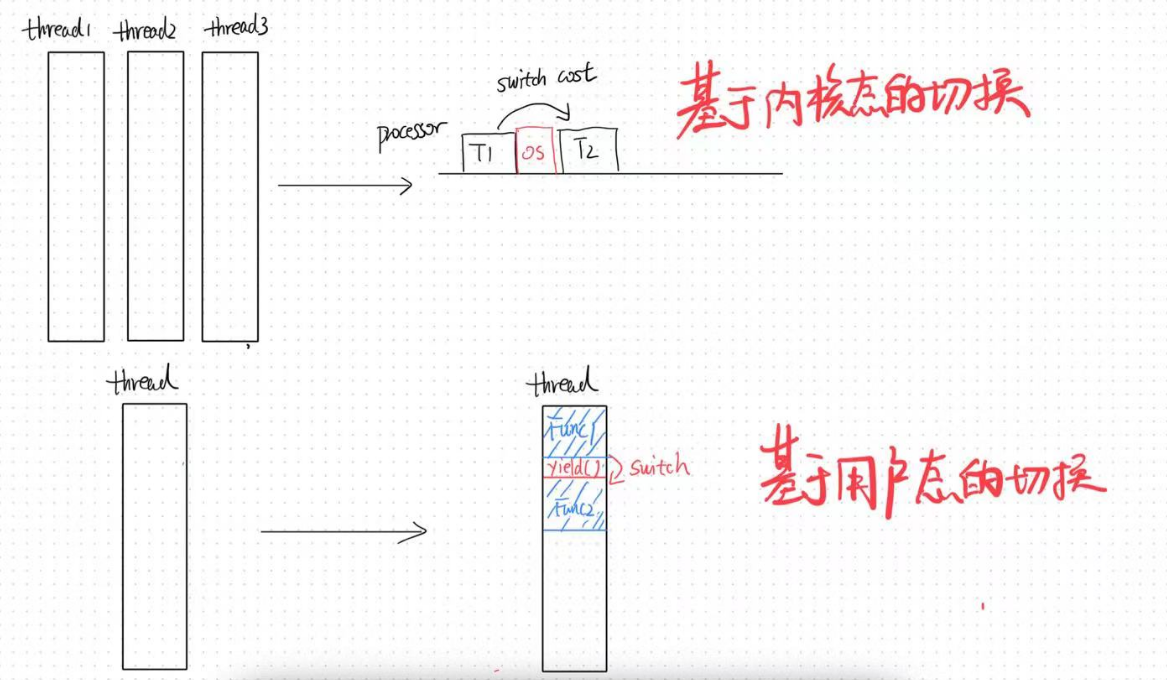 thread1 thread2 thread3
switch cost
processor
T1 OS T2
基于内核态的切换
thread
thread
func1
yield()
switch
func2
基于用户态的切换